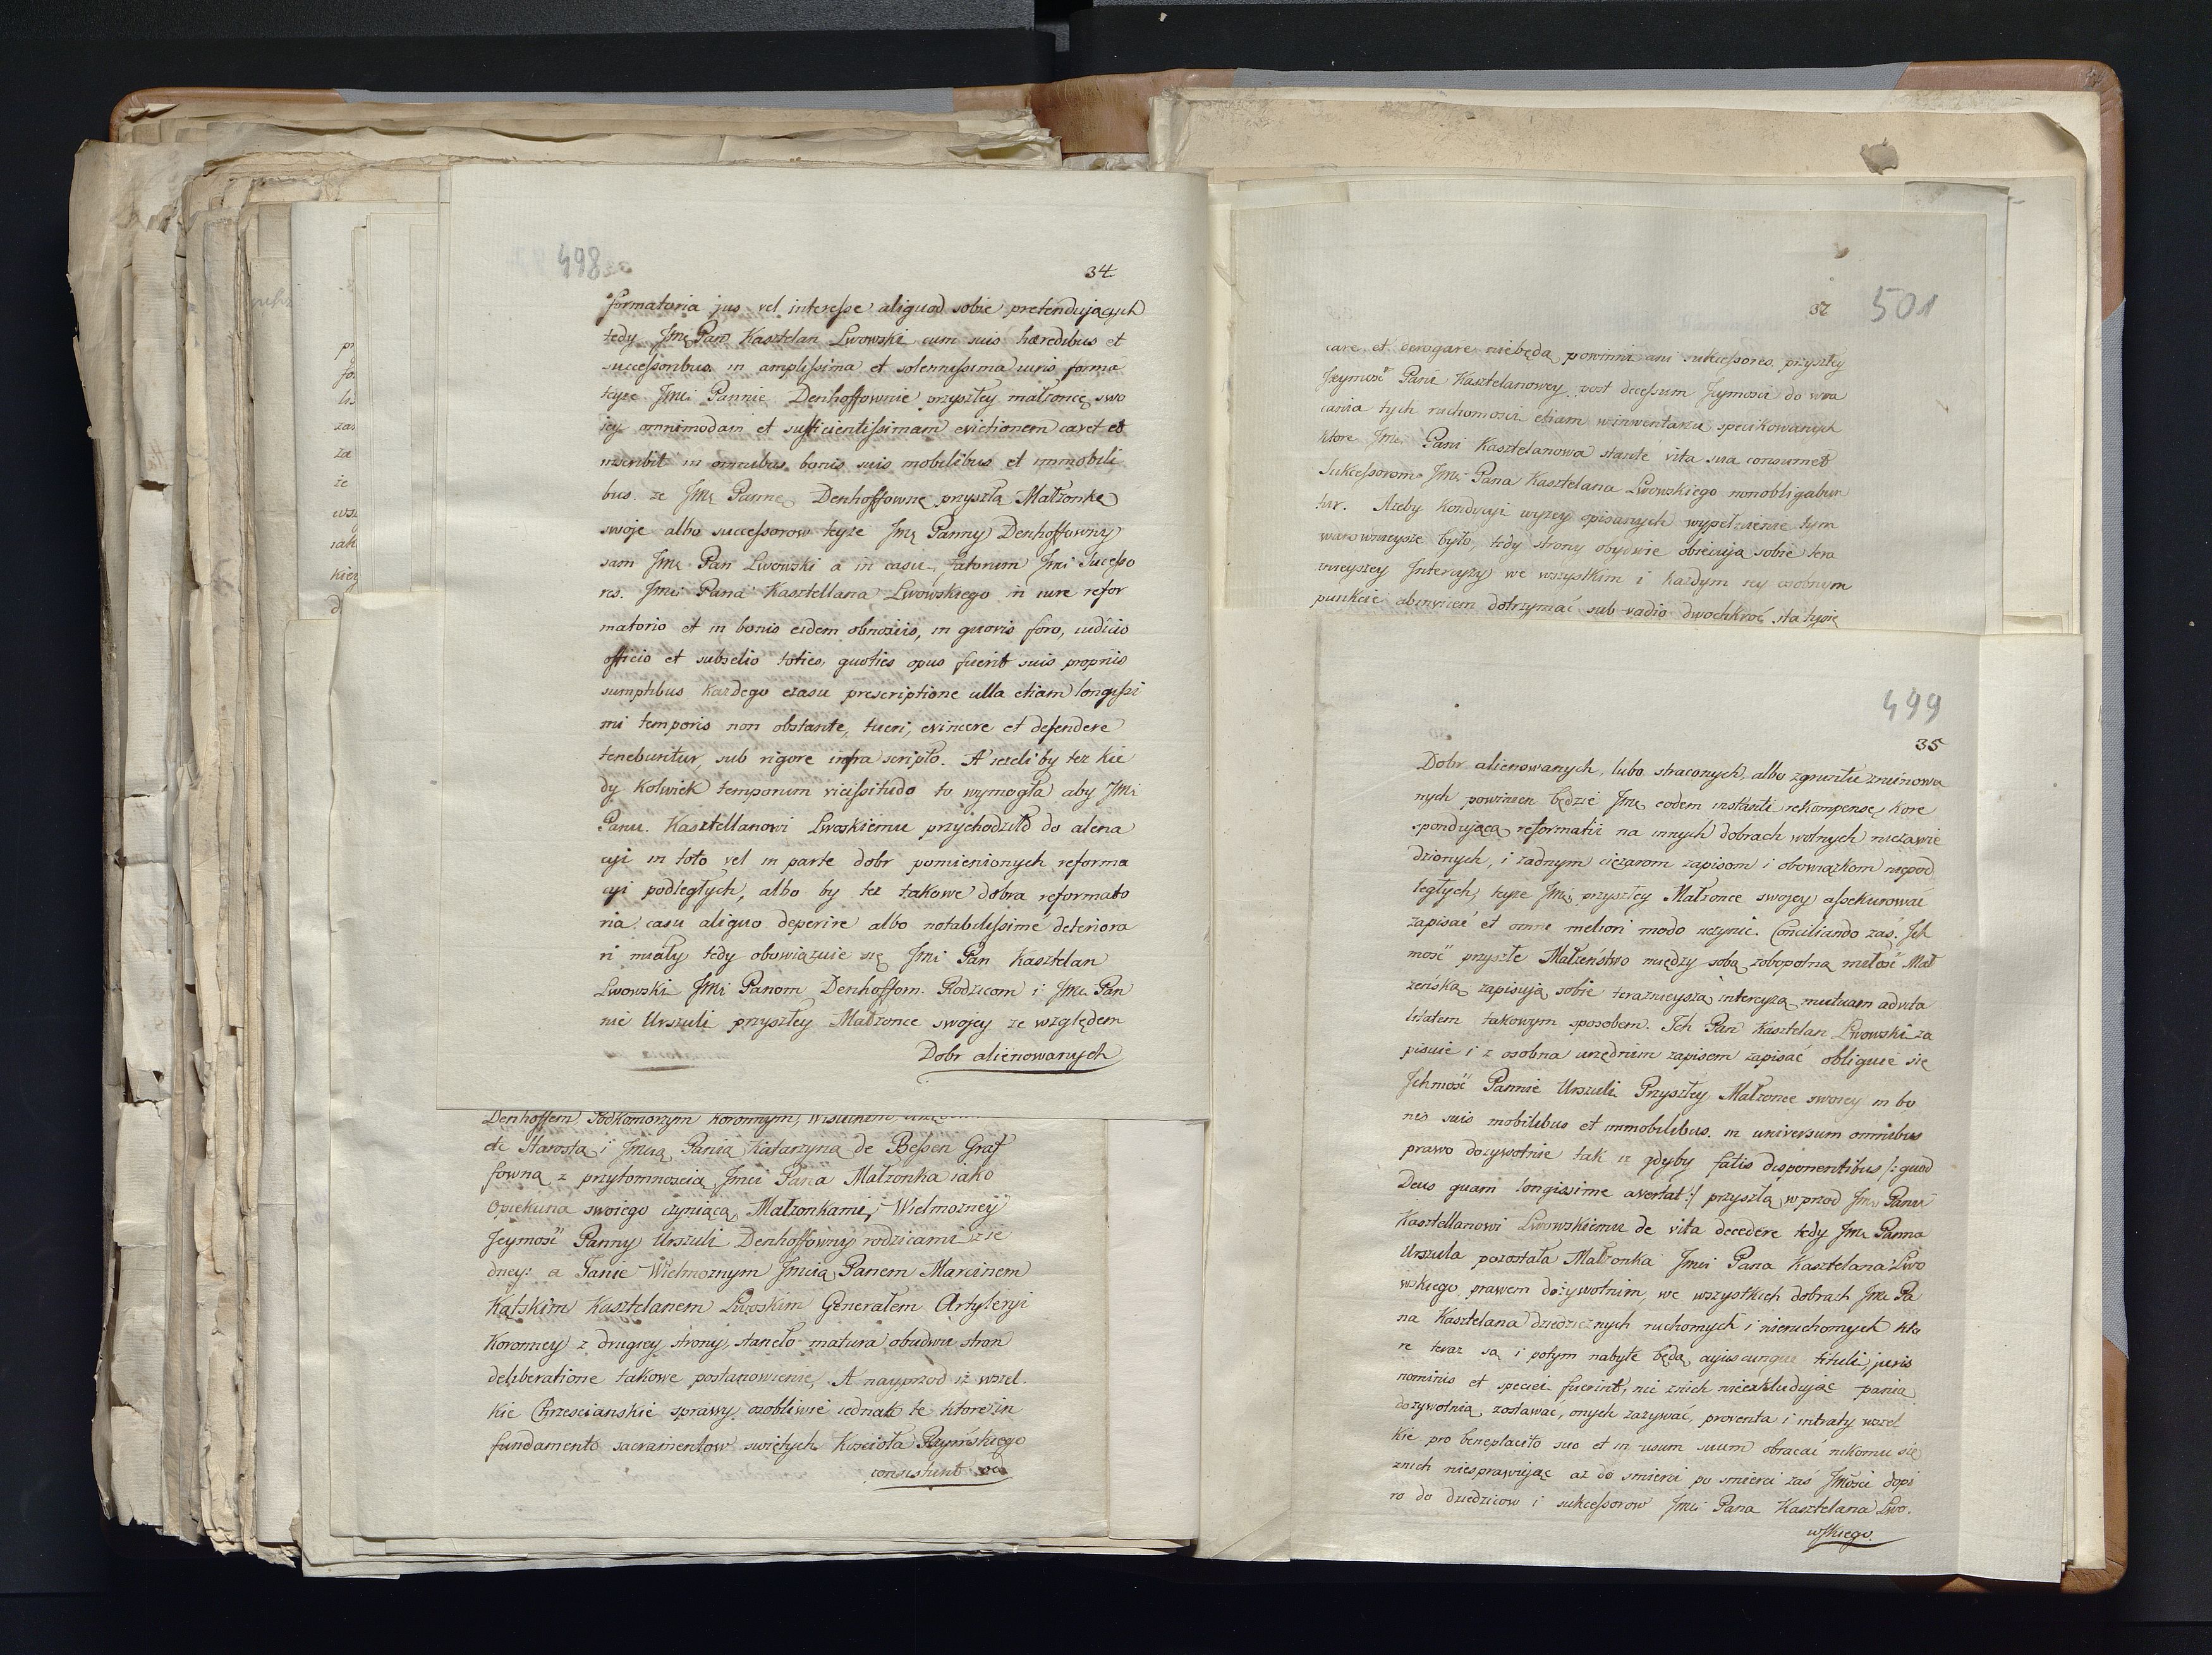 498
34
formatoria jus vel interesse aliquod sobie pretendujących
tedy Jmę Pan Kasztelan Lwowski cum suis hæredibus et
successoribus in amplissima et solennissima iuris forma
teyże Jmci Pannie Denhoffownie przyszłey małżonce swo
iey omnimodam et sufficientissimam evictionem cavet et
inscribit in omnibus bonis suis mobilibus et immobili
bus. że Jmę Pannę Denhoffownę przyszłą Małżonkę
swoje albo successorow teyże Jmę Panny Denhoffowny
sam Jmę Pan Lwowski a in casu fatorum Jmci Sucesso
res. Jmci Pana Kasztellana Lwowskiego in iure refor
matorio et in bonis eidem obnoxiis, in quovis foro, iudicio
officio et subselio toties, quoties opus fuerit suis propriis
sumptibus każdego czasu prescriptione ulla etiam longissi
mi temporis non obstante, tueri, evincere et defendere
tenebuntur, sub rigore infra scripto. A ieżeli by też kie
dy kolwiek temporum vicissitudo to wymogła aby Jmci
Panu. Kasztellanowi Lwoskiemu przychodziło do aliena
cyi in toto vel in parte dobr pomienionych reforma
cyi podległych, albo by też takowe dobra reformato
ria casu aliquo deperire albo notabilissime deteriora
ri miały tedy obowiązuie się Jmci Pan Kasztelan
Lwowski Jmci Panom Denhoffom Rodzicom i Jmci Pan
nie Urszuli przyszłey Małżonce swojey ze względem
Dobr alienowanych
Denhoffem, Podkomorzym koronnym,
etc Starostą i Jmcią Panią Katarzyną de Bessen Graf
fowną z przytomnoscią Jmci Pana Małżonka iako
Opiekuna swoiego czyniącą Małżonkami, Wielmożney
Jeymość Panny Urszuli Denhoffowny rodzicami z ie
dney: a Panie Wielmoznym Jmcią Panem Marcinem
Kątskim Kasztelanem Lwoskim Generałem Artyleryi
Koronney z drugiey strony, staneło matura obudwu stron
deliberatione takowe postanowienie, A nayprzod iż wszel.
kie Chrzescianskie sprawy osobliwie iednak te ktore in
fundamento sacramentow swiętych Kościoła Rzymskiego
consistunt od
501
37
care et derogare niebędą powinni ani sukcessores przyszłey
Jeymość Pani Kasztelanowey post decessum Jeymosci do wra
cania tych ruchomosci etiam w inwentarzu specikowanych
ktore Jmci Pani Kasztelanowa stante vita sua consumet
Sukcessorom Jmci Pana Kasztelana Lwowskiego nonobligabun
tur. Ażeby kondycyi wyżey opisanych wypełnienie tym
warownieysze było, tedy strony obydwie obiecują sobie tera
znieyszey Intercyzy we wszystkim i każdym iey osobnym
punkcie dotrzymać sub vadio dwochkroć sta tysię
499
35
Dobr alienowanych, lubo straconych albo zgruntu zruinowa
nych powinien będzie Jmę eodem instanti rekompensę kore
spondującą reformatii na innych dobrach wolnych niezawie
dzionych, i żadnym ciężarom zapisom i obowiązkom niepod
ległych, teyże Jmę przyszłey Małżonce swojey assekurować
zapisać et omni meliori modo uczynić. Conciliando zaś. Ich
mość przyszłe Małżeństwo między sobą zobopolną miłość Mał
żeńską zapisują sobie teraznieyszą intercyzą mutuam advita
litatem takowym sposobem. Ich Pan Kasztelan Lwowski za
pisuie i z osobna urzędnim zapisem zapisać obliguie się
Ichmość Pannie Urszuli Przyszłey Małżonce swoiey in bo
nis suis mobilibus et immobilibus. in universum omnibus
prawo dożywotnie tak iż gdyby fatis disponentibus /: quod
Deus quam longissime avertat :/ przyszłą wprzod Jmci Panu
Kasztellanowi Lwowskiemu de vita decedere tedy Jmę Panna
Urszula pozostała Małżonka Jmci Pana Kasztelana Lwo
wskiego, prawem dożywotnim, we wszystkich dobrach Jmci Pa
na Kasztelana Dziedzicznych ruchomych i nieruchomych kto
re teraz są i potym nabyte będą cujuscunque tituli, juris
nominis et speciei fuerint, nic znich nieexkludując panią
dożywotnią zostawać, onych zażywać, proventa i intraty wszel
kie pro beneplacito suo et in usum suum obracać nikomu się
znich niesprawując aż do smierci po smierci zaś Jmości dopi
ro do dziedzicow i sukcessorow Jmci Pana Kasztelana Lwo.
wskiego